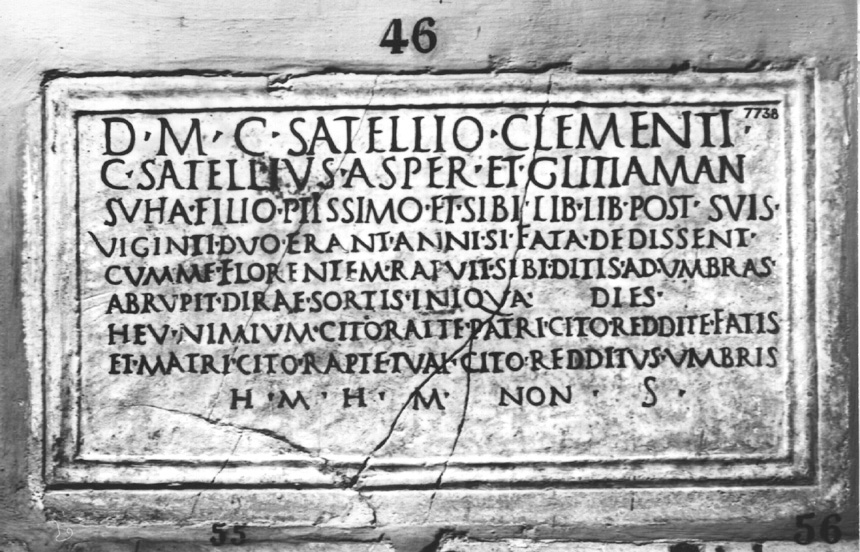 46
7738
D·M·C·SATELLIO·CLEMENTI·
C·SATELLIVS·ASPER·ET·GLITIAMAN
SVHA·FILIO·PIISSIMO·ET·SIBI·LIB·LIB·POST·SVIS·
VIGINTI·DVO·ERANT·ANNI·SI·FATA·DEDISSENT·
CVM·ME·FLORENTEM·RAPVIT·SIBI·DITIS·AD·VMBRAS·
ABRVPIT·DIRAE·SORTIS·INIQVA· DIES·
HEV·NIMIVM·CITO·RAPTE·PATRI·CITO·REDDITE·FATIS
ET·MATRI·CITO·RAPTE·TVAE·CITO·REDDITVS·VMBRIS
H·M·H·M· NON · S·
55
56